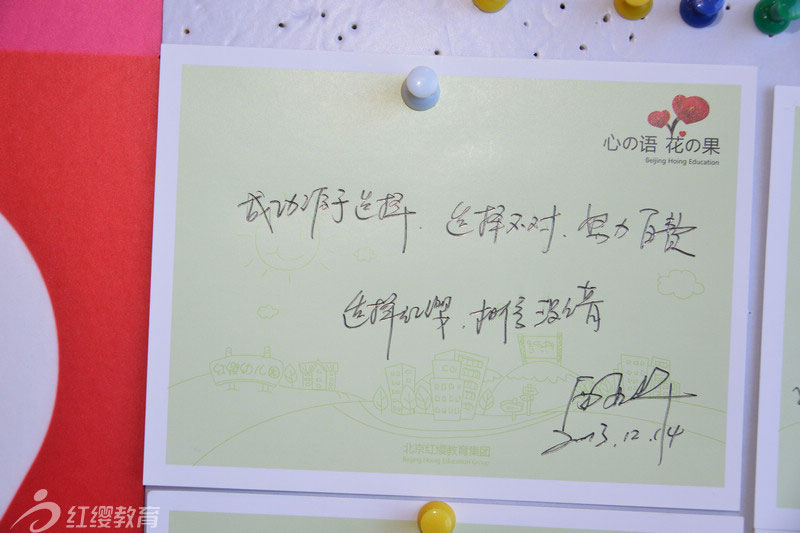 心の语 花の果
Beijing Hoing Education
成功源于选择.选择不对.努力百费
选择红缨.相信没错
2013.12.14
红缨幼儿园
北京红缨教育集团
Beijing Hoing Education Group
红缨教育